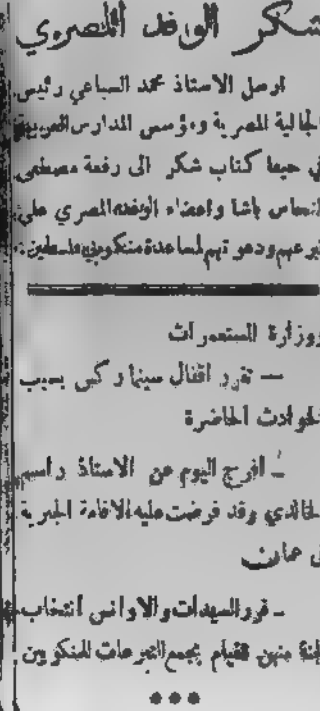 شكر الوفد المصري
ارسل الاستاذ محمد السباعي رئيس
الجالية المصرية ومؤسس المدارس العربية
في حيفا كتاب شكر الى رفعة مصطفى
النحاس باشا واعضاء الوفد المصري على
تبرعهم ودعوتهم لمساعدة منكوبي فلسطين.
ووزارة المستعمرات
— تقرر اقفال سينما ركس بسبب
الحوادث الحاضرة
– افرج اليوم عن الاستاذ راسم
الخالدي وقد فرضت عليه الاقامة الجبرية
في
– قرر السيدات والاوانس انتخاب
لجنة منهن للقيام بجمع التبرعات للمنكوبين
•••